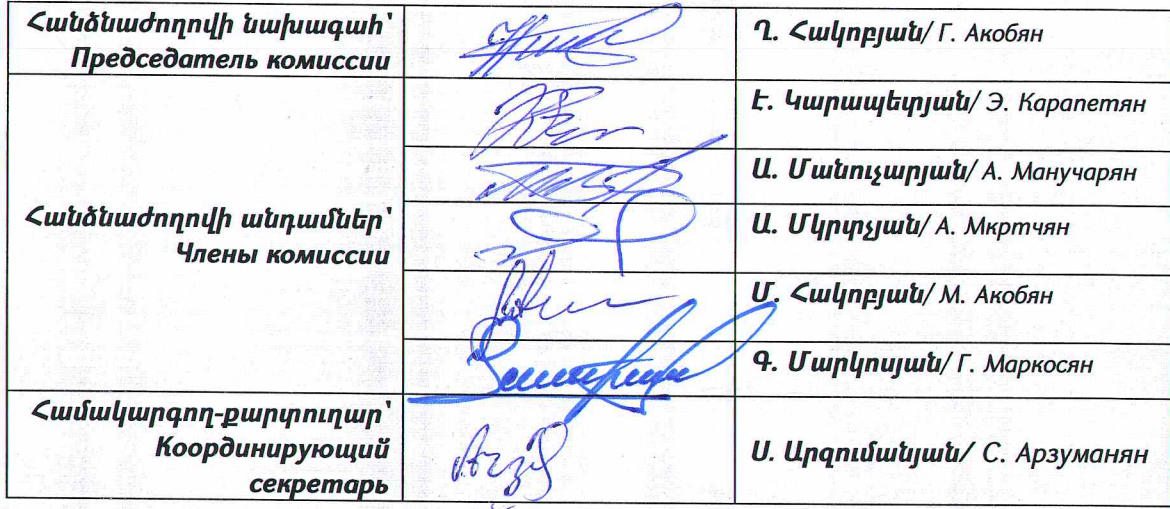 Հանձնաժողովի նախագահ՝
Председатель комиссии
Ղ. Հակոբյան/ Г. Акобян
Հանձնաժողովի անդամներ՝
Члены комиссии
Է. Կարապետյան/ Э. Карапетян
Ա. Մանուչարյան/ А. Манучарян
Ա. Մկրտչյան/ А. Мкртчян
Մ. Հակոբյան/ М. Акобян
Գ. Մարկոսյան/ Г. Маркосян
Համակարգող-քարտուղար՝
Координирующий
секретарь
Ս. Արզումանյան/ С. Арзуманян